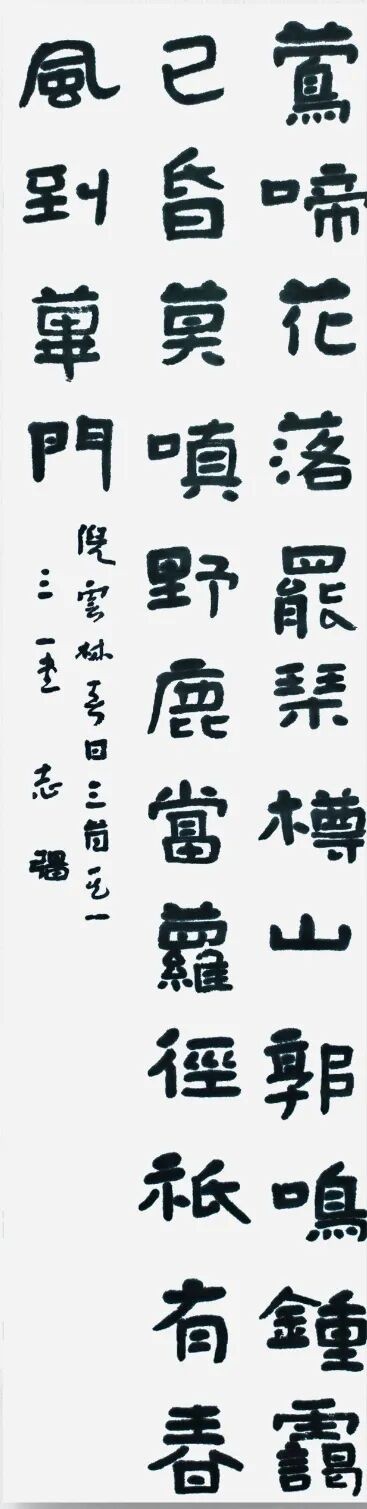 鶯啼花落罷琴樽山郭鳴鍾靄
已昏莫嗔野鹿當蘿徑祇有春
風到蓽門
倪雲林春日三首其一
三一 志彊